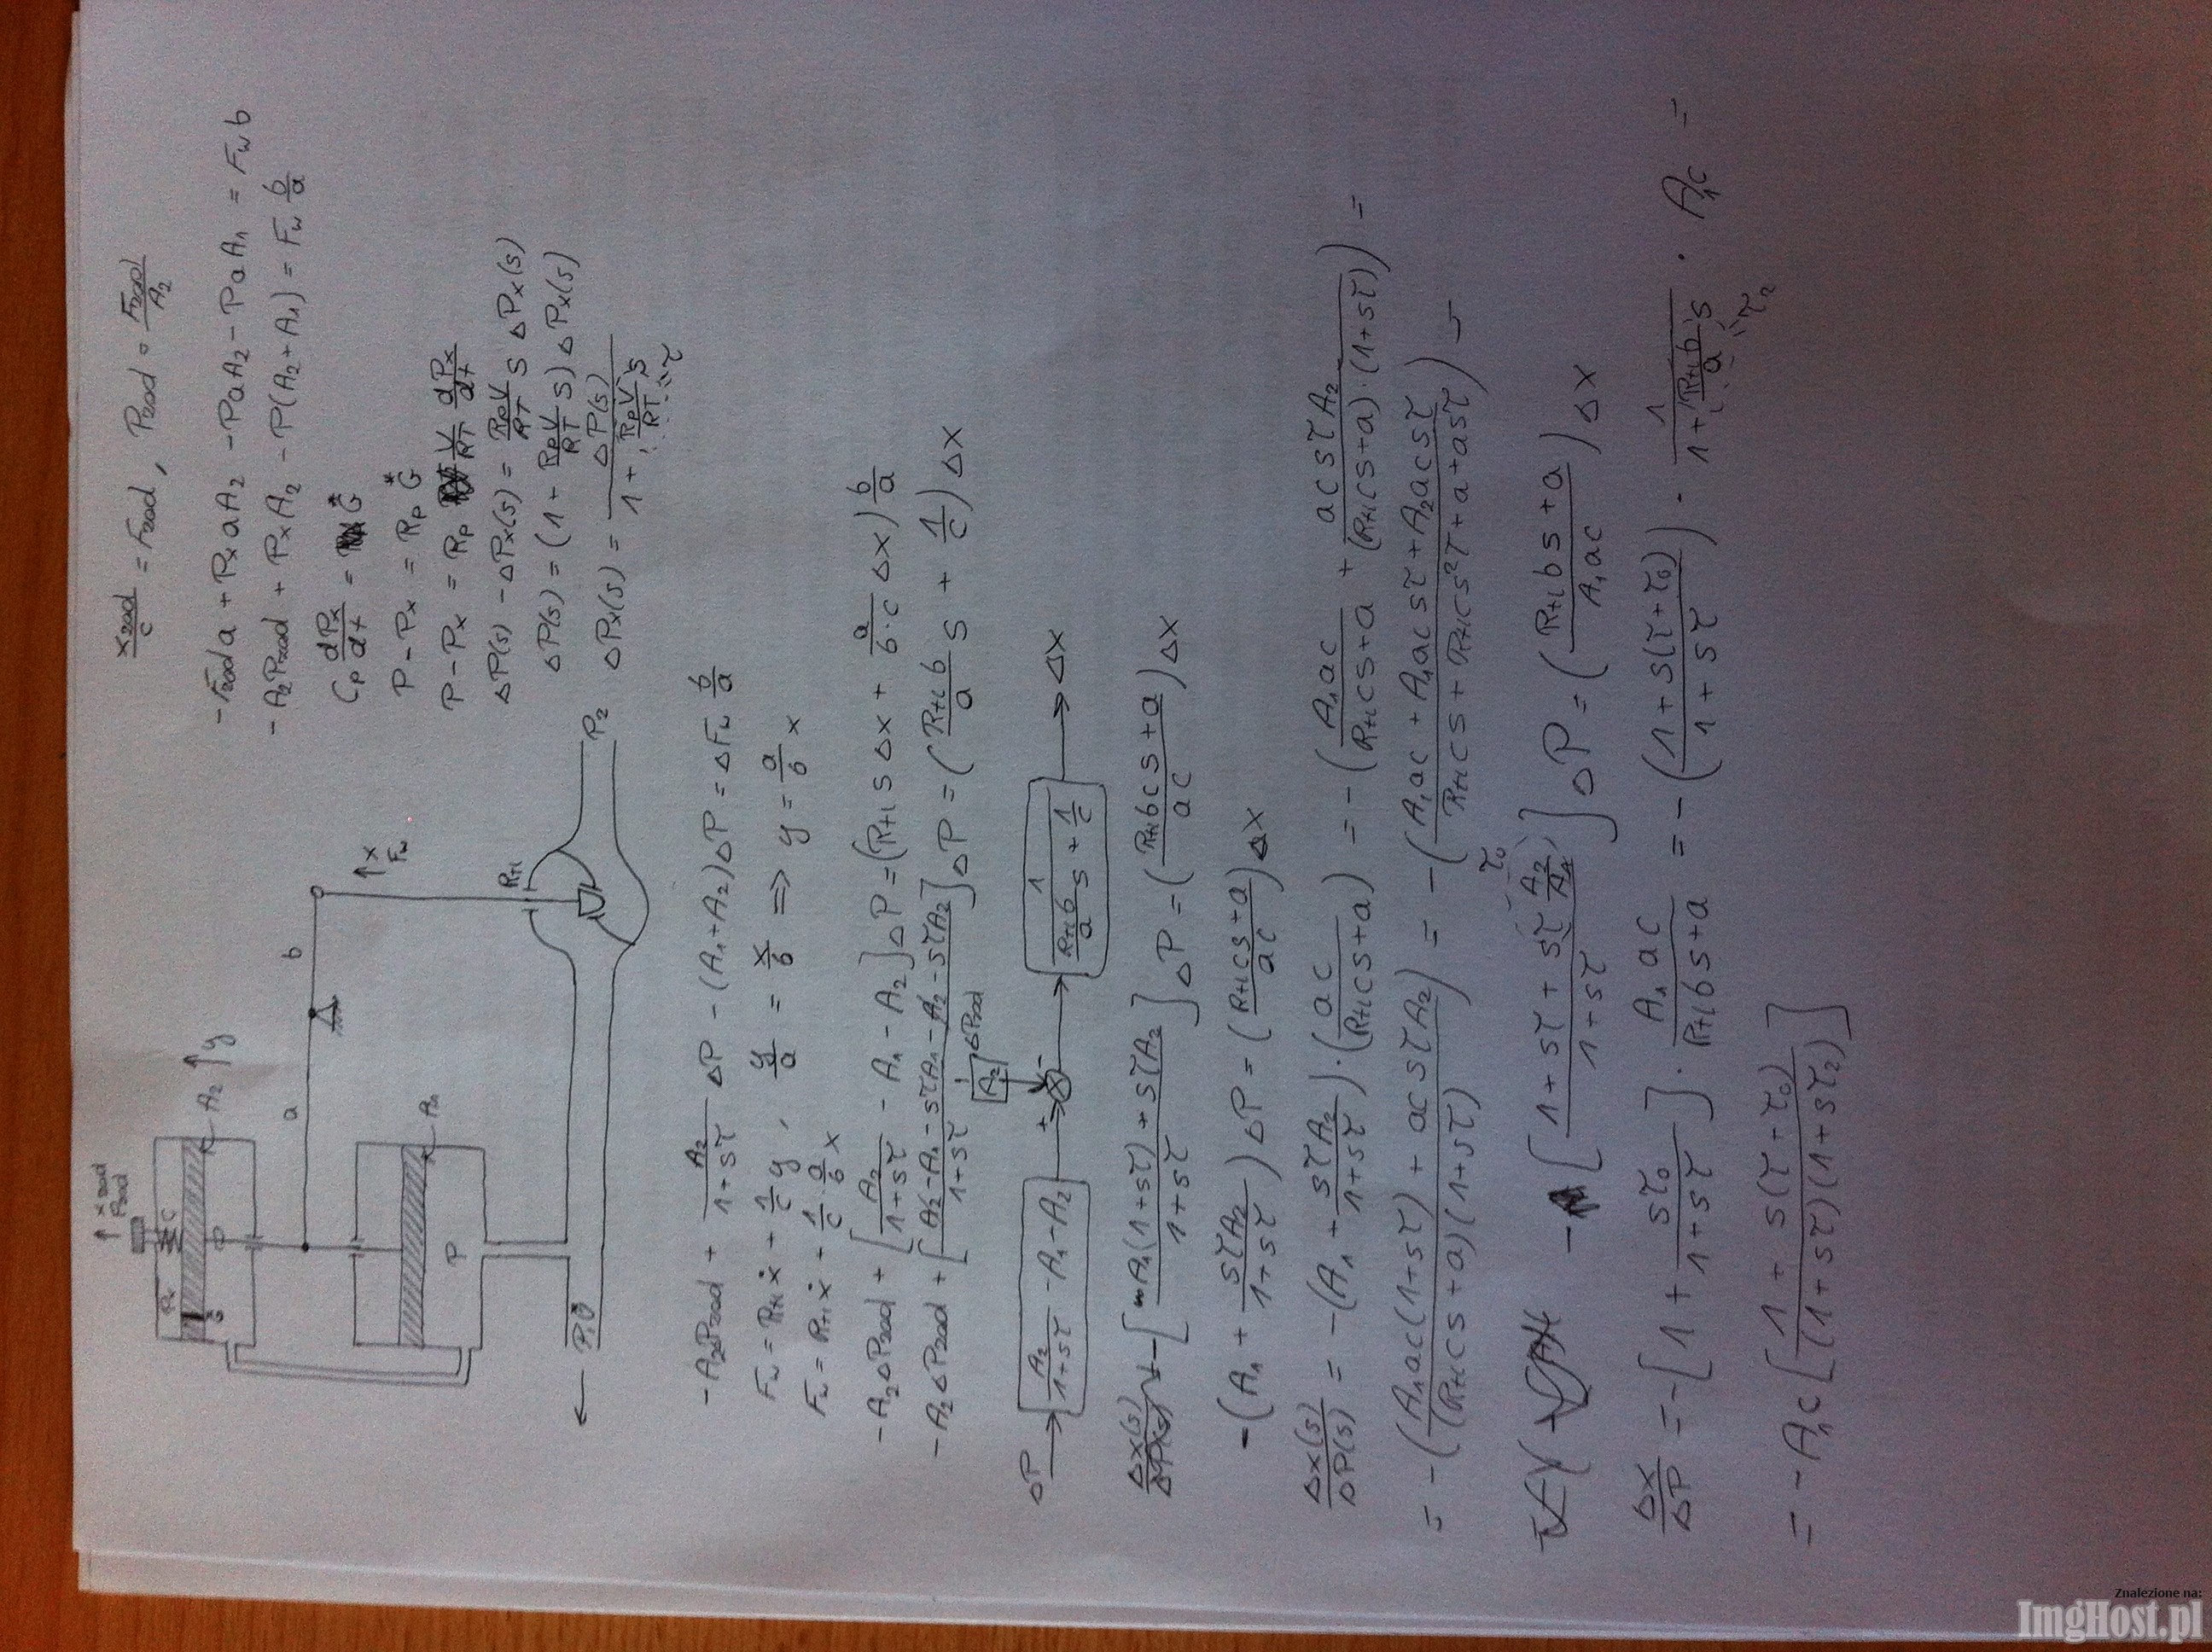 x_zad/c = F_zad , P_zad = F_zad/A₂
-F_zad a + Pₓ a A₂ - P a A₂ - P a A₁ = F_w b
-A₂ P_zad + Pₓ A₂ - P(A₂+A₁) = F_w b/a
C_p dPₓ/dt = G*
P - Pₓ = R_p G*
P - Pₓ = R_p V/RT dPₓ/dt
ΔP(s) - ΔPₓ(s) = R_pV/RT s ΔPₓ(s)
ΔP(s) = (1 + R_pV/RT s) ΔPₓ(s)
ΔPₓ(s) = ΔP(s) / (1 + R_pV/RT s)
τ
x_zad
P_zad
Pₓ
C
G
A₂
y
a
b
x
F_w
R_tł
A₁
P
P₁
P₂
-A₂ΔP_zad + A₂/(1+sτ) ΔP - (A₁+A₂)ΔP = ΔF_w b/a
F_w = R_tł ẋ + 1/c y , y/a = x/b => y = a/b x
F_w = R_tł ẋ + 1/c · a/b x
-A₂ΔP_zad + [A₂/(1+sτ) - A₁ - A₂]ΔP = (R_tł s Δx + a/(b·c) Δx) b/a
-A₂ΔP_zad + [(A₂ - A₁ - sτA₁ - A₂ - sτA₂)/(1+sτ)]ΔP = (R_tł b/a s + 1/c)Δx
A₂ ΔP_zad
ΔP → [A₂/(1+sτ) - A₁ - A₂] → + ⊗ - → [1/(R_tł b/a s + 1/c)] → Δx
Δx(s)/ΔP(s) - [(A₁(1+sτ) + sτA₂)/(1+sτ)]ΔP = ((R_tł b c s + a)/(a c))Δx
-(A₁ + sτA₂/(1+sτ))ΔP = ((R_tł c s + a)/(a c))Δx
Δx(s)/ΔP(s) = -(A₁ + sτA₂/(1+sτ))·(a c/(R_tł c s + a)) = -(A₁ a c/(R_tł c s + a) + a c s τ A₂/((R_tł c s + a)·(1+sτ))) =
= -((A₁ a c(1+sτ) + a c s τ A₂)/((R_tł c s + a)(1+sτ))) = -((A₁ a c + A₁ a c s τ + A₂ a c s τ)/(R_tł c s + R_tł c s²τ + a + a s τ))
-[(1 + sτ + sτ A₂/A₁)/(1+sτ)]ΔP = ((R_tł b s + a)/(A₁ a c))Δx
τ₀
Δx/ΔP = -[1 + sτ₀/(1+sτ)] · A₁ a c/(R_tł b s + a) = -((1 + s(τ+τ₀))/(1+sτ)) · 1/(1 + (R_tł b/a) s) · A₁c =
τ₂
= -A₁c[(1 + s(τ+τ₀))/((1+sτ)(1+sτ₂))]
Znalezione na:
ImgHost.pl